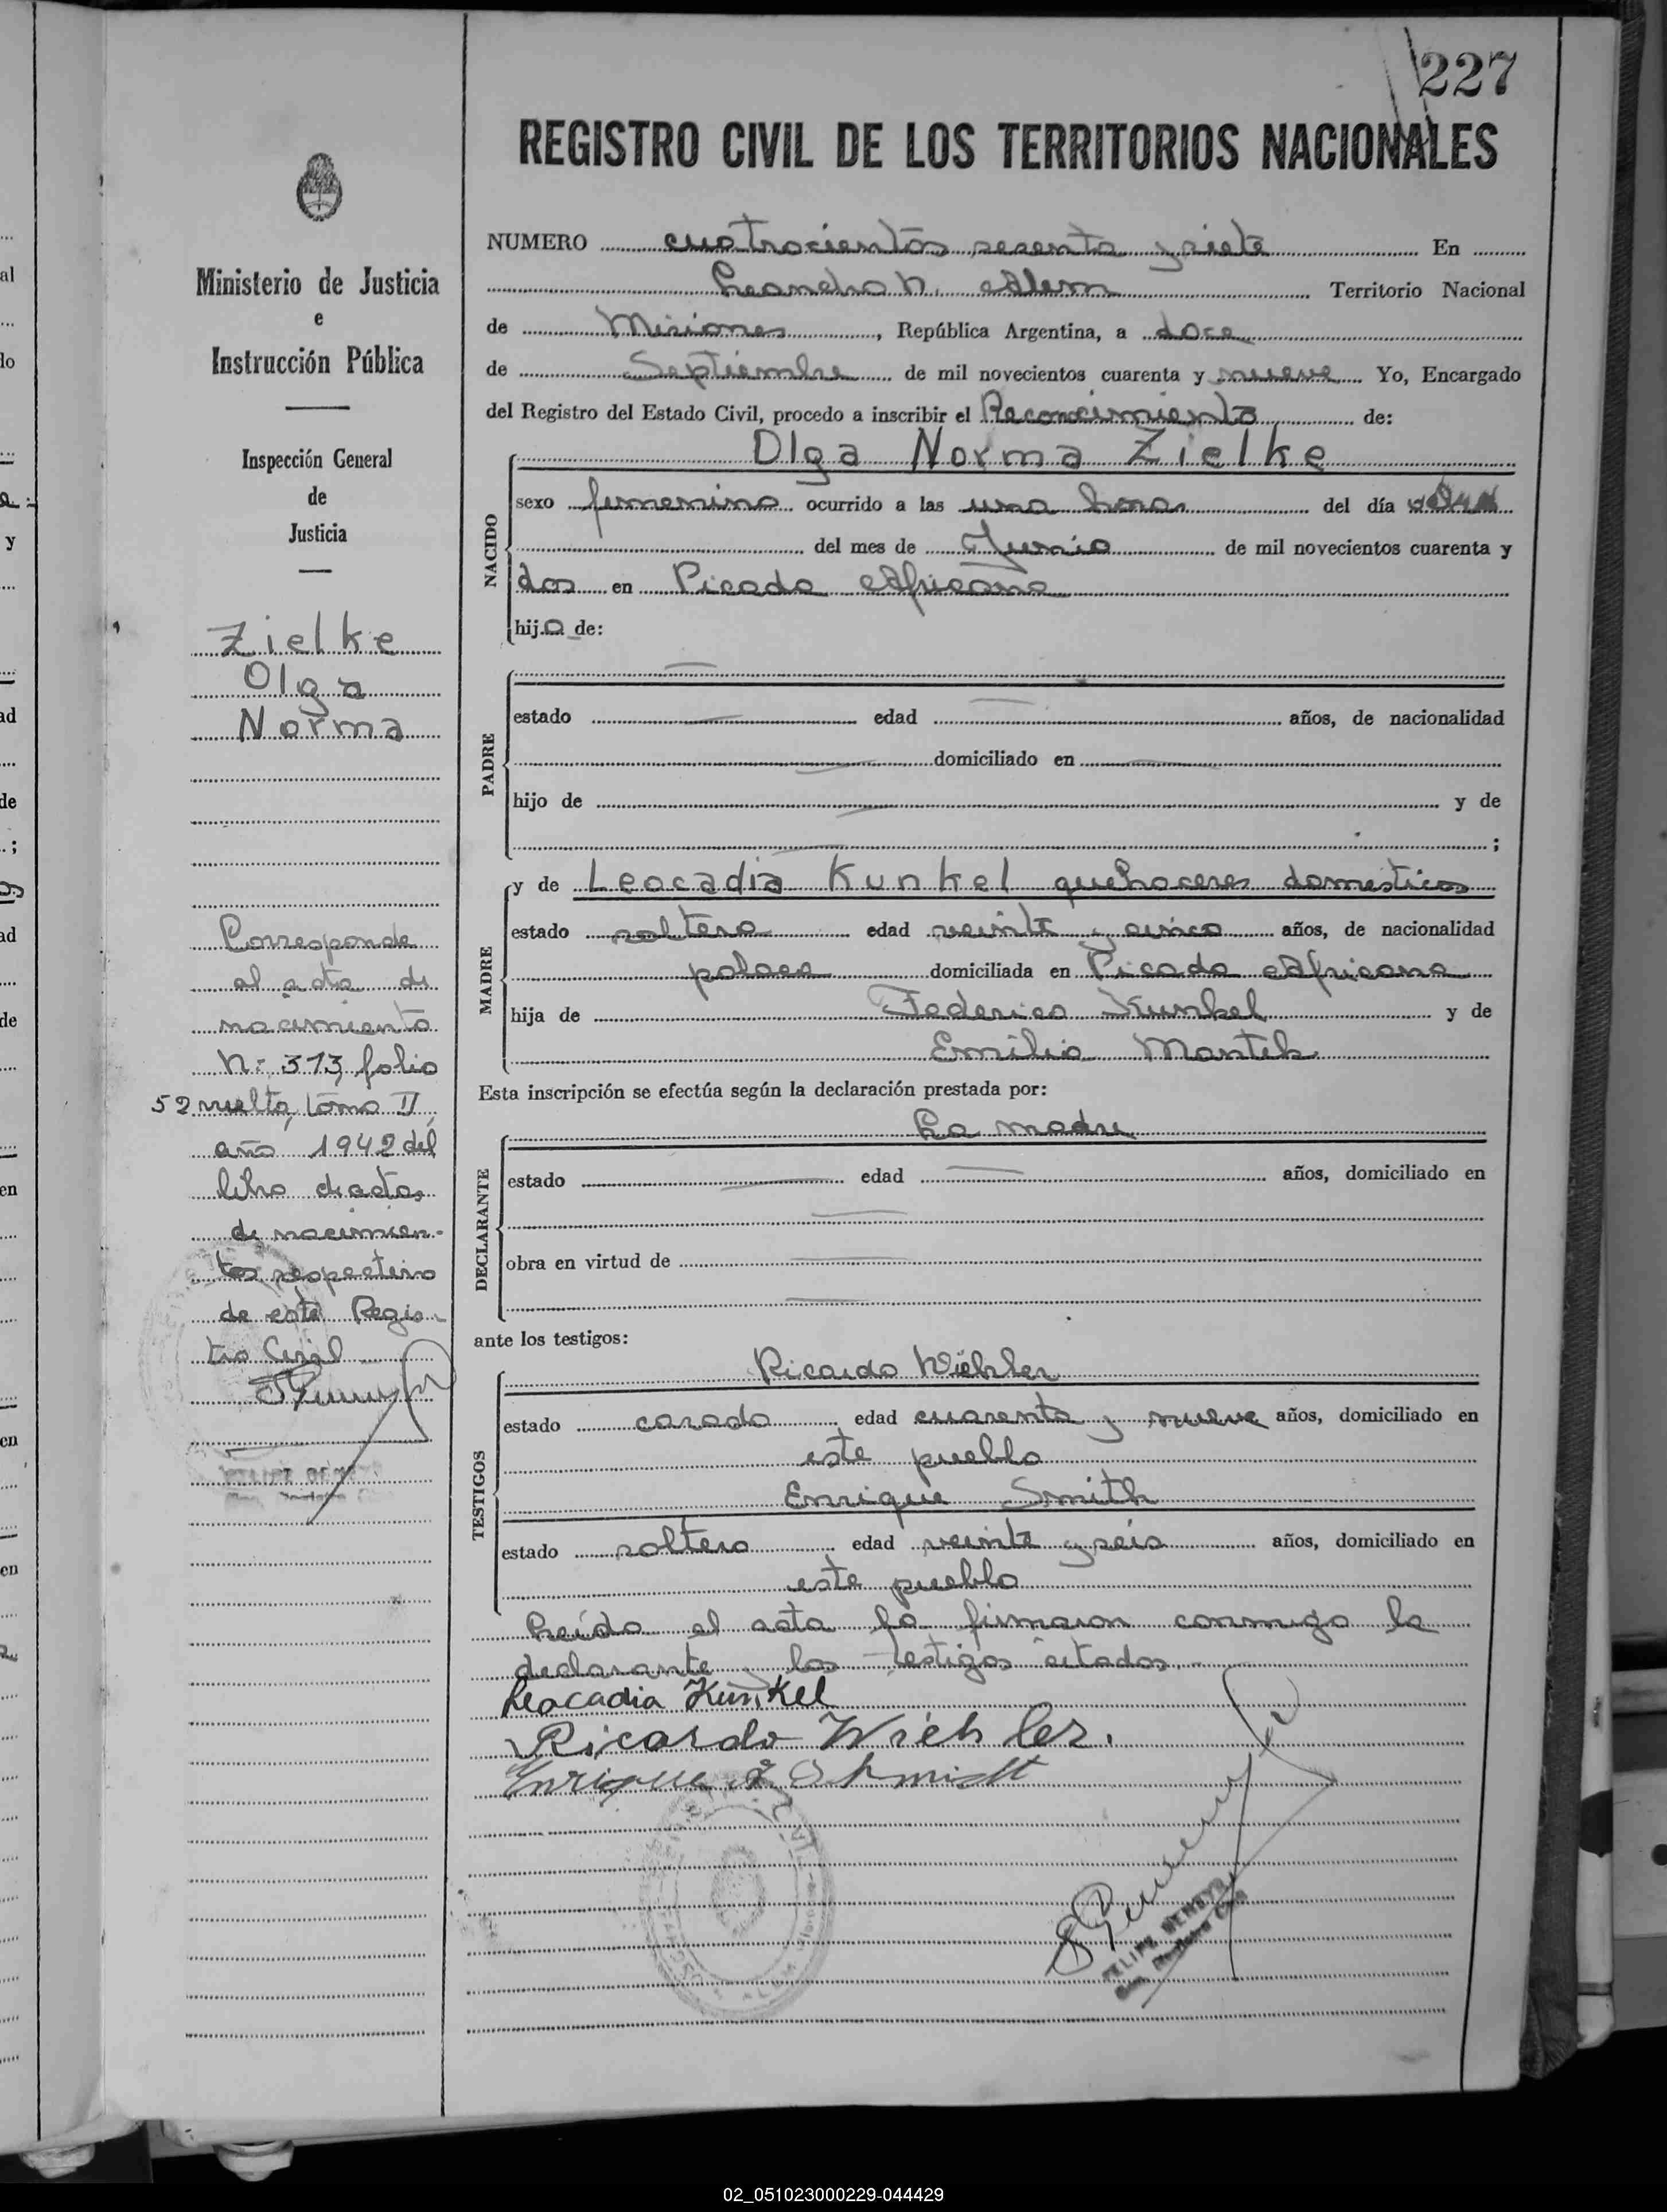 227
REGISTRO CIVIL DE LOS TERRITORIOS NACIONALES
NUMERO cuatrocientos sesenta y siete En
Leandro N. Alem Territorio Nacional
de Misiones, República Argentina, a doce
de Septiembre de mil novecientos cuarenta y nueve Yo, Encargado
del Registro del Estado Civil, procedo a inscribir el Reconocimiento de:
Olga Norma Zielke
NACIDO
sexo femenino ocurrido a las una horas del día
del mes de Junio de mil novecientos cuarenta y
dos en Picada Africana
hija de:
PADRE
estado edad años, de nacionalidad
domiciliado en
hijo de y de
;
MADRE
y de Leocadia Kunkel quehaceres domesticos
estado soltera edad veinte y cinco años, de nacionalidad
polaca domiciliada en Picada Africana
hija de Federico Kunkel y de
Emilia Mantik
Esta inscripción se efectúa según la declaración prestada por:
La madre
DECLARANTE
estado edad años, domiciliado en
obra en virtud de
ante los testigos:
TESTIGOS
Ricardo Wiehler
estado casado edad cuarenta y nueve años, domiciliado en
este pueblo
Enrique Smith
estado soltero edad veinte y seis años, domiciliado en
este pueblo
Leída el acta la firmaron conmigo la
declarante y los testigos citados.
Leocadia Kunkel
Ricardo Wiehler.
Enrique Schmidt
FELIPE
Ministerio de Justicia
e
Instrucción Pública
Inspección General
de
Justicia
Zielke
Olga
Norma
Corresponde
al acta de
nacimiento
N: 373, folio
52 vuelta, tomo II,
año 1942 del
libro de actas
de nacimien-
tos respectivo
de este Regis-
tro Civil
al
do
y
ad
de
;
ad
de
en
en
en
02_051023000229-044429